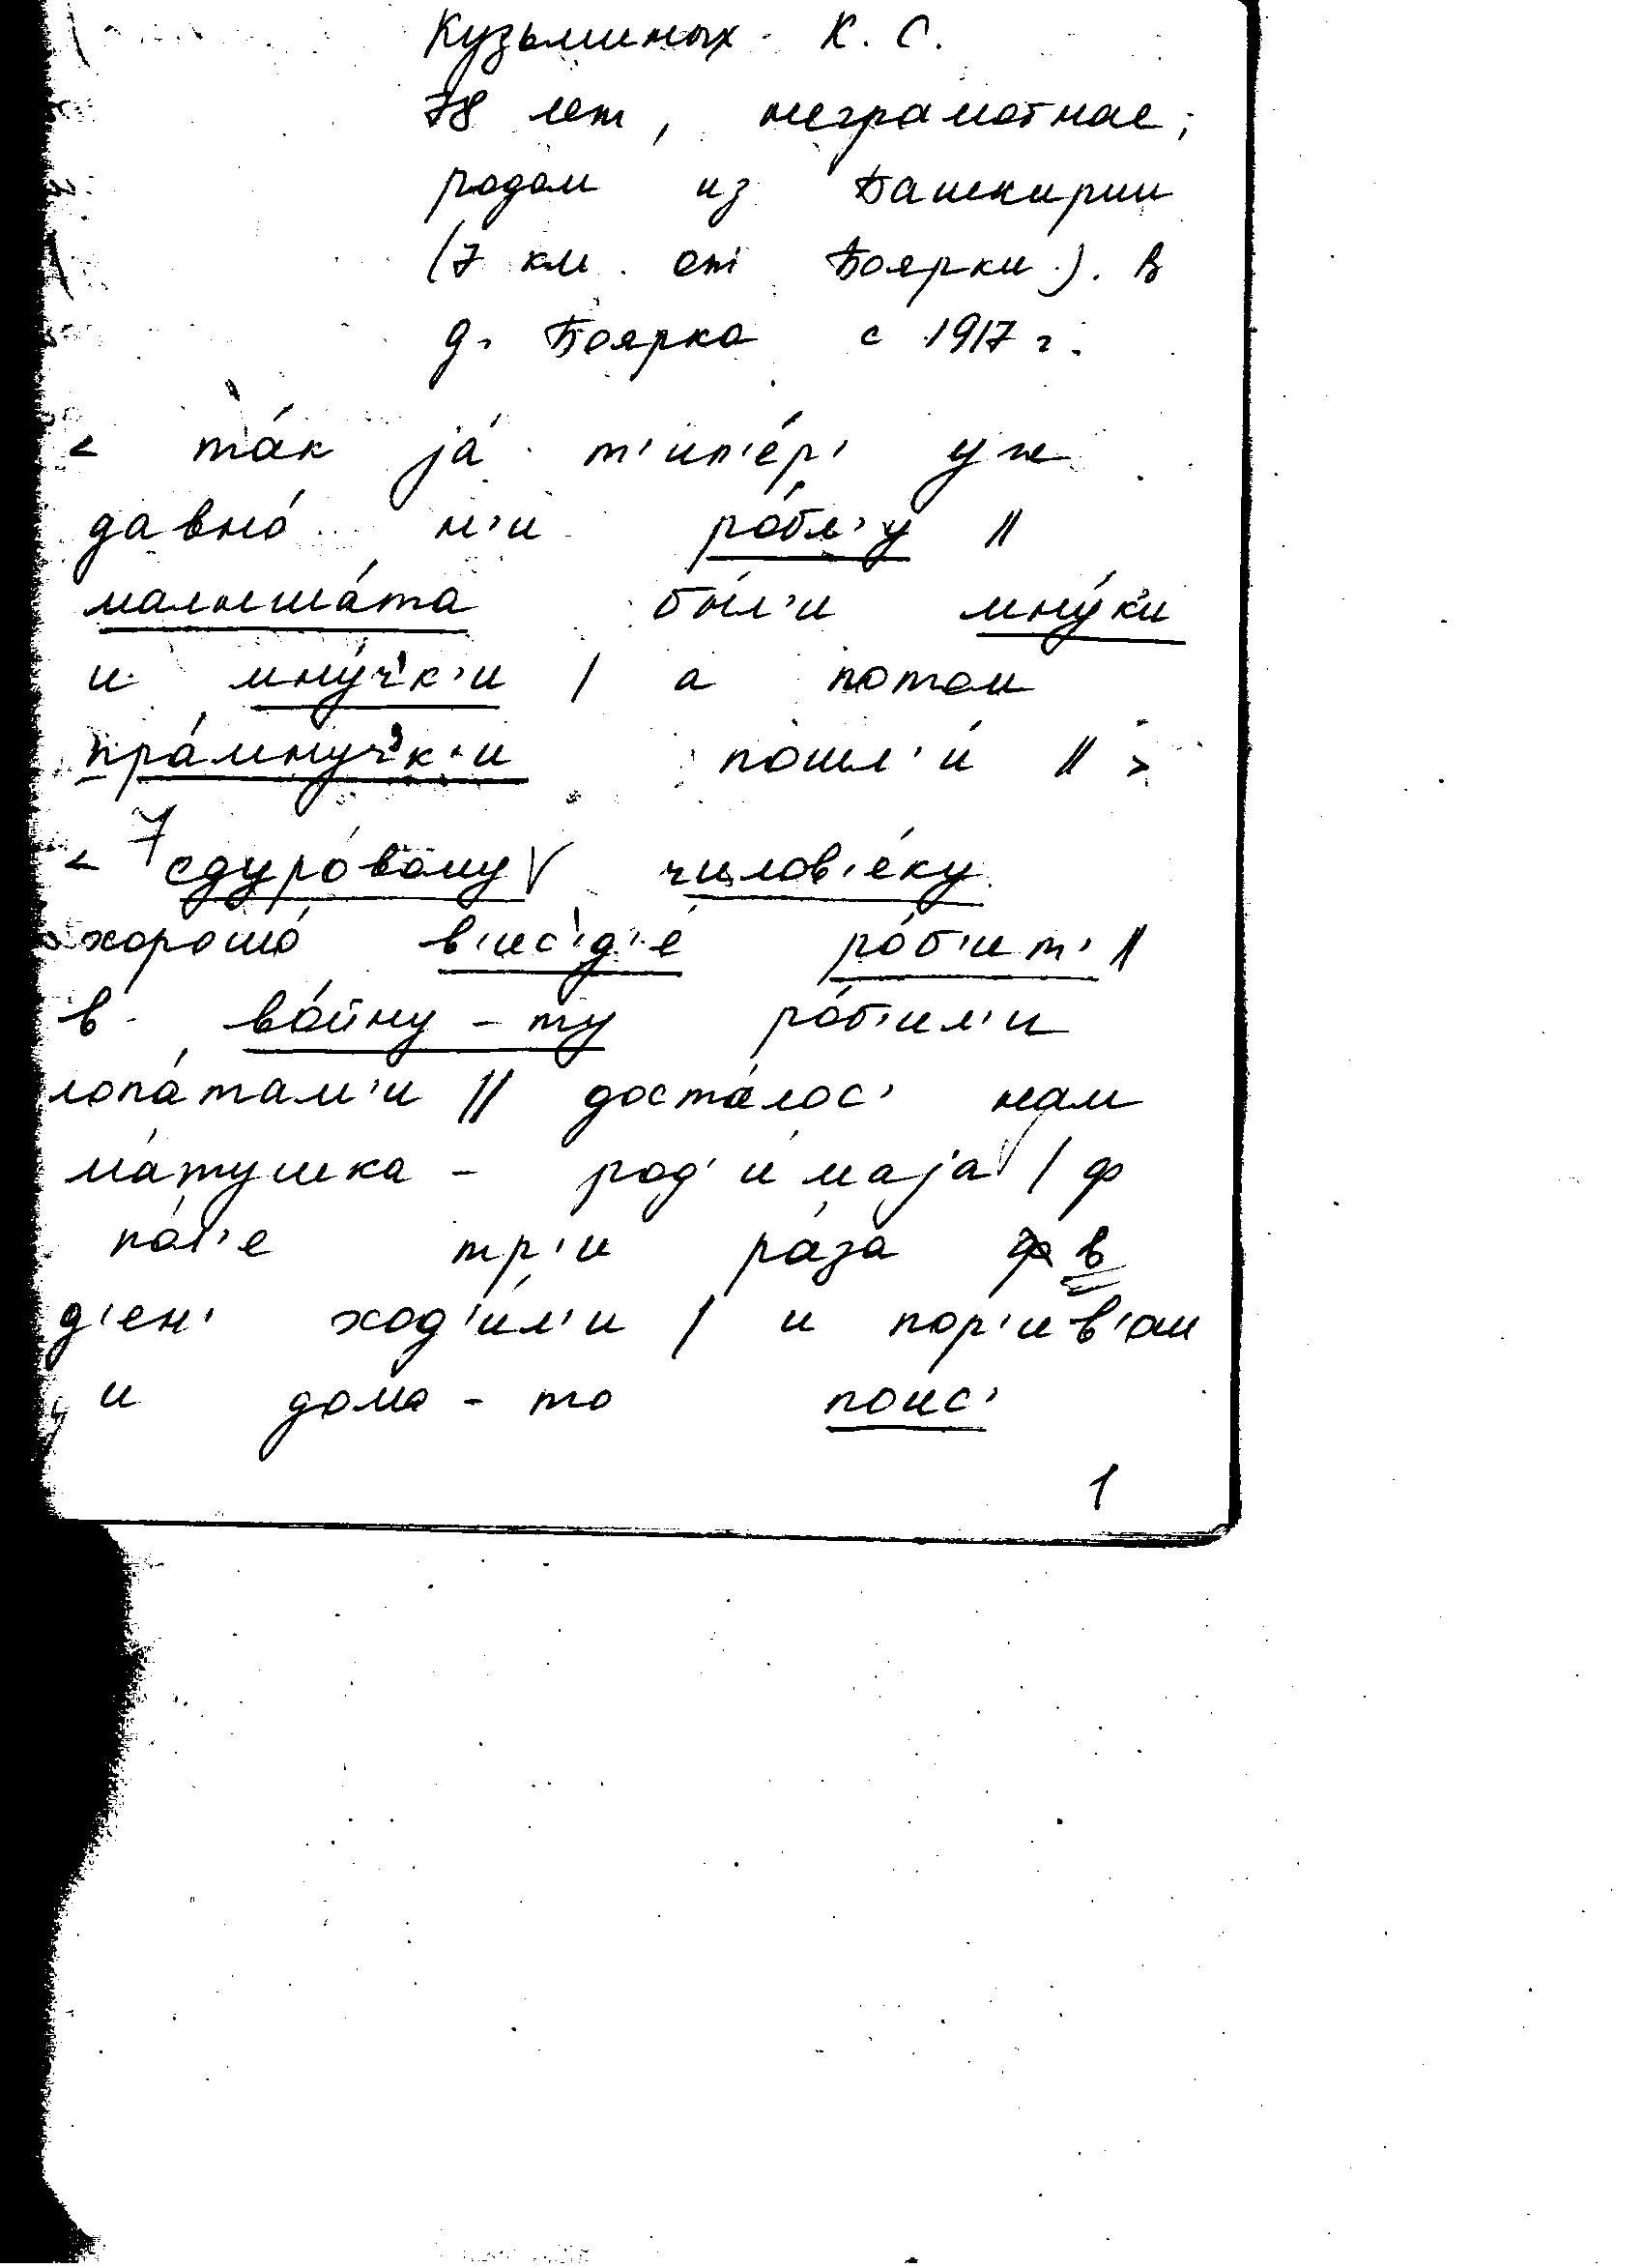 Кузьминых К. С.
78 лет, неграмотная;
родом из Башкирии
(7 км. от Боярки). В
д. Боярка с 1917 г.
< та́к jа́ т'ип'е́р' уж
давно́ н'и ро́бл'у //
малыша́та бы́л'и мну́к'и
и мну́ч'к'и / а потом
пра́мнуч'к'и пошл'и́ // >
< сдуро́вому чилов'е́ку
хорошо́ в'ис'д'е́ ро́б'ит' //
в во́йну - ту ро́б'ил'и
лопа́там'и // доста́лос' нам
ма́тушка - род'и́маjа / ф
по́л'е тр'и ра́за в
д'ен' ход'и́л'и / и пор'ив'ом
и дома - то поис'
1